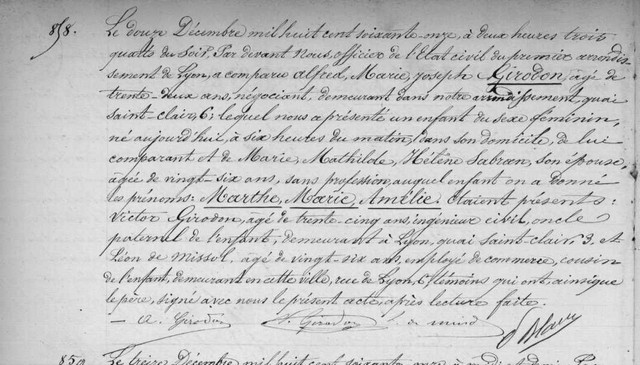 858.
Le douze Décembre mil huit cent soixante-onze, à deux heures trois
quarts du Soir, Par devant Nous, officier de l'Etat civil du premier arrondis
sement de Lyon, a comparu alfred, Marie, Joseph Girodon, âgé de
trente-deux ans, négociant, demeurant dans notre arrondissement, quai
saint-clair, 6; lequel nous a présenté un enfant du sexe féminin,
né aujourd'hui, à six heures du matin, dans son domicile, de lui
comparant et de Marie, Mathilde, Hélène Sabran, son épouse,
âgée de vingt six ans, sans profession, auquel enfant on a donné
les prénoms: Marthe, Marie Amélie. Etaient présents:
Victor Girodon, âgé de trente-cinq ans, ingénieur civil, oncle
paternel de l'enfant, demeurant à Lyon, quai saint-clair, 3, et
Léon de Missol, âgé de vingt-six ans, employé de commerce, cousin
de l'enfant, demeurant en cette ville, rue de Lyon, témoins qui ont ainsi que
le père, signé avec nous le présent acte, après lecture faite.
A. Girodon V. Girodon L. de Missol
859. Le treize Décembre mil huit cent soixante onze à midi